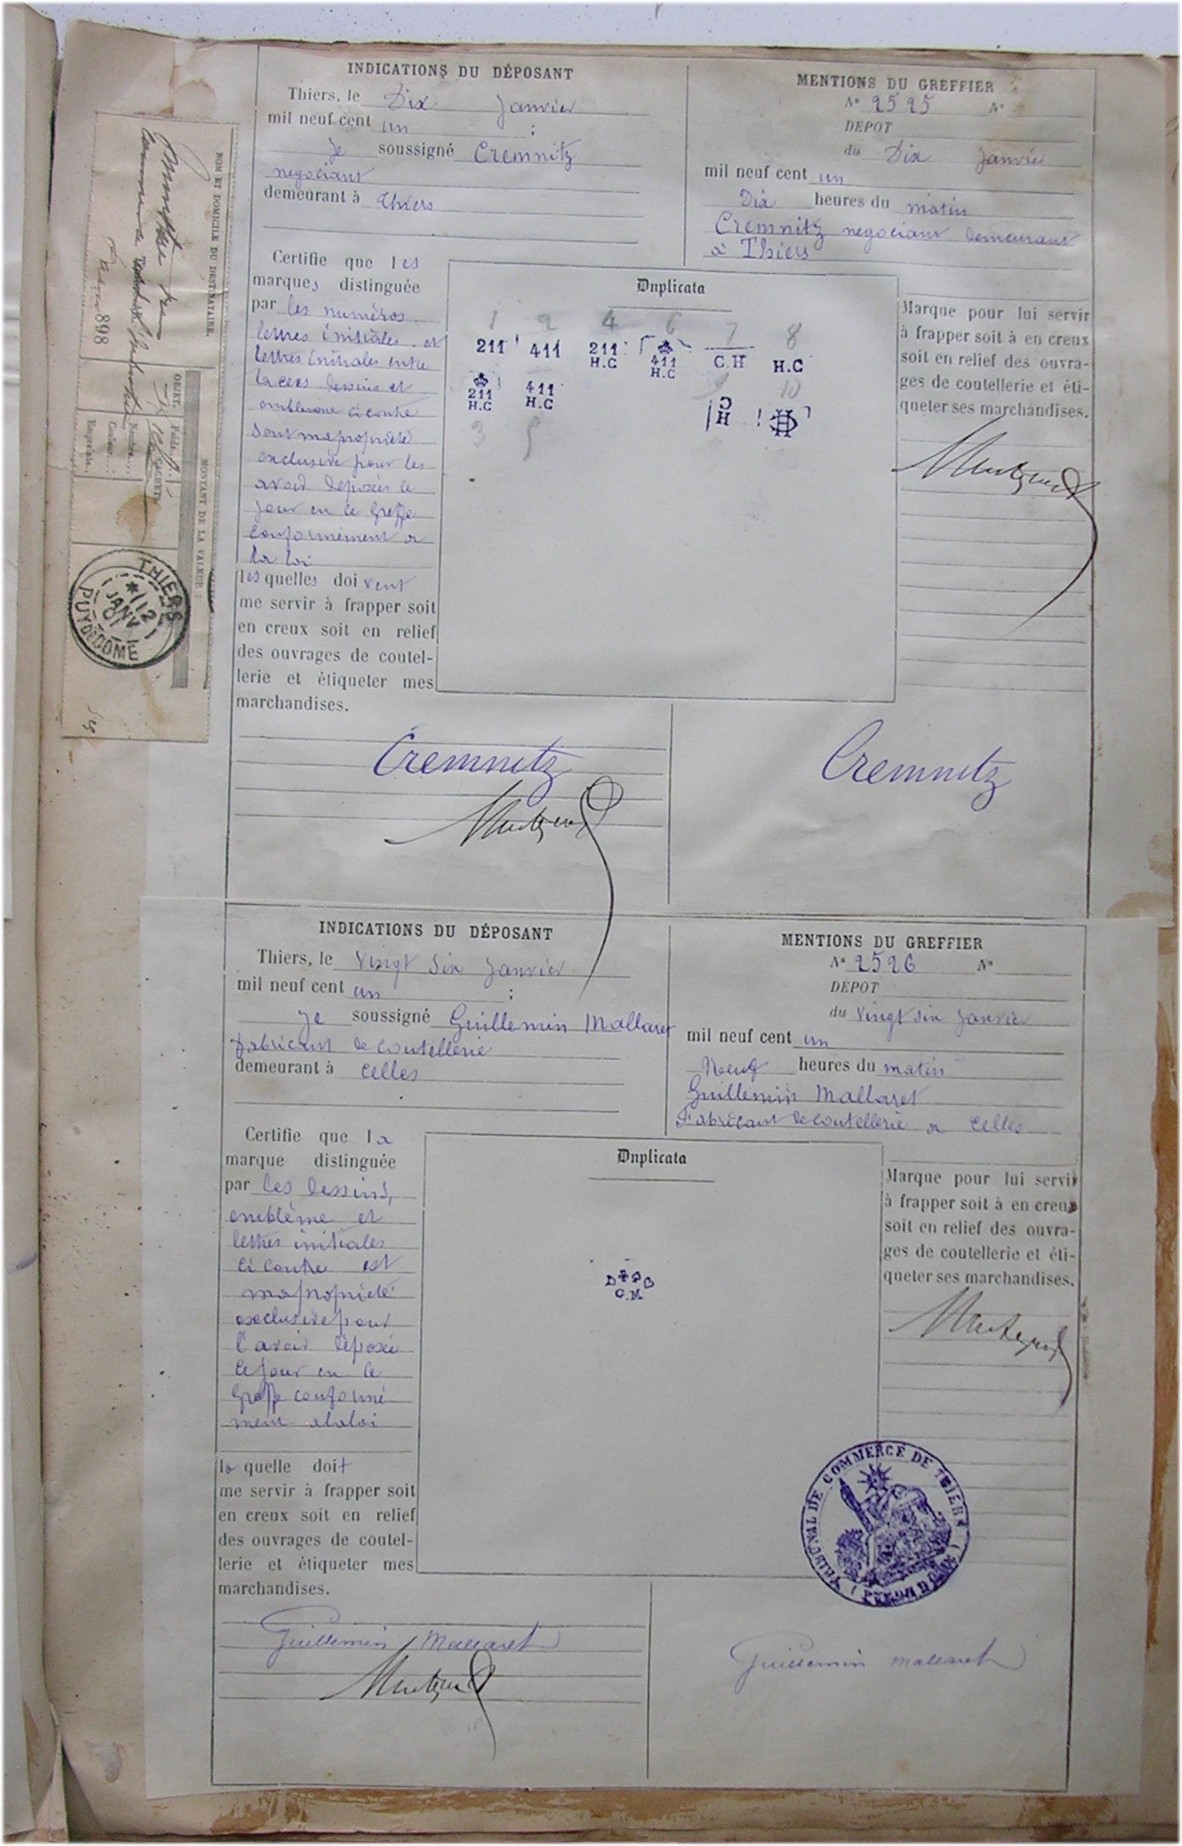 INDICATIONS DU DÉPOSANT
Thiers, le Dix Janvier
mil neuf cent un ;
Je soussigné Cremnitz
negociant
demeurant à Thiers
MENTIONS DU GREFFIER
N° 2525 N°
DEPOT
du Dix Janvier
mil neuf cent un
Dix heures du matin
Cremnitz negociant demeurant
à Thiers
Certifie que les
marques distinguée
par les numéros
lettres initiales et
lettres initiales entre
lacees dessins et
emblème ci contre
sont ma propriété
exclusive pour les
avoir déposés le
jour en ce Greffe
conformément a
la loi
lesquelles doivent
me servir à frapper soit
en creux soit en relief
des ouvrages de coutel-
lerie et étiqueter mes
marchandises.
Duplicata
1 2 4 6 7 8
211 411 211 H.C 411 H.C C.H H.C
211 H.C 411 H.C C H
10
3 5
Marque pour lui servir
à frapper soit à en creux
soit en relief des ouvra-
ges de coutellerie et éti-
queter ses marchandises.
Cremnitz
Cremnitz
NOM ET DOMICILE DU DESTINATAIRE.
898
OBJET.
Poids
Nombre
CACHETS
Couleur
Empreinte
MONTANT DE LA VALEUR :
THIERS
12
JANV
01
PUY DE DOME
INDICATIONS DU DÉPOSANT
Thiers, le Vingt Six Janvier
mil neuf cent un ;
Je soussigné Guillemin Mallaret
Fabricant de coutellerie
demeurant à Celles
MENTIONS DU GREFFIER
N° 2526 N°
DEPOT
du Vingt six Janvier
mil neuf cent un
Neuf heures du matin
Guillemin Mallaret
Fabricant de coutellerie a Celles
Certifie que la
marque distinguée
par les dessins,
emblème et
lettres initiales
ci contre est
ma propriété
exclusive pour
l'avoir déposée
ce jour en ce
Greffe conformé
ment a la loi
la quelle doit
me servir à frapper soit
en creux soit en relief
des ouvrages de coutel-
lerie et étiqueter mes
marchandises.
Duplicata
G.M.
Marque pour lui servir
à frapper soit à en creux
soit en relief des ouvra-
ges de coutellerie et éti-
queter ses marchandises.
TRIBUNAL DE COMMERCE DE THIERS
(PUY DE DOME)
Guillemin Mallaret
Guillemin Mallaret